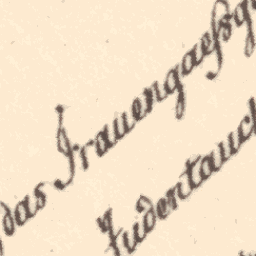 das Frauengaessg
Judentauch